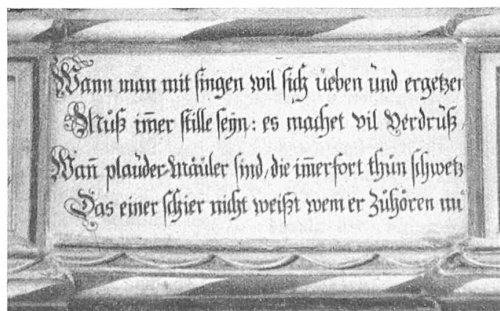 Wann man mit singen wil sich üeben und ergetzen
Muß im̄er stille seyn: es machet vil Verdruß,
Wan̄ plauder-Mäuler sind, die im̄erfort thun schwetz
Das einer schier nicht weißt wem er Zuhören mu